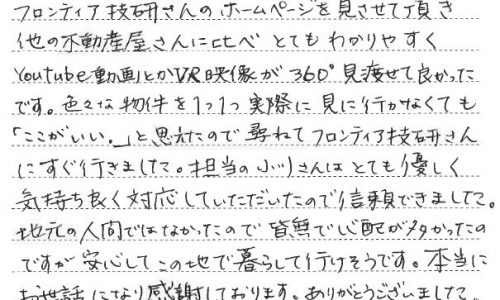 フロンティア技研さんのホームページを見させて頂き
他の不動産屋さんに比べとてもわかりやすく
Youtube動画とかVR映像が360°見渡せて良かった
です。色々な物件を1つ1つ実際に見に行かなくても
「ここがいい。」と思えたので尋ねてフロンティア技研さん
にすぐ行きました。担当の小川さんはとても優しく
気持ち良く対応していただいたので信頼できました。
地元の人間ではなかったので皆無で心配が多かったの
ですが安心してこの地で暮らして行けそうです。本当に
お世話になり感謝しております。ありがとうございました。